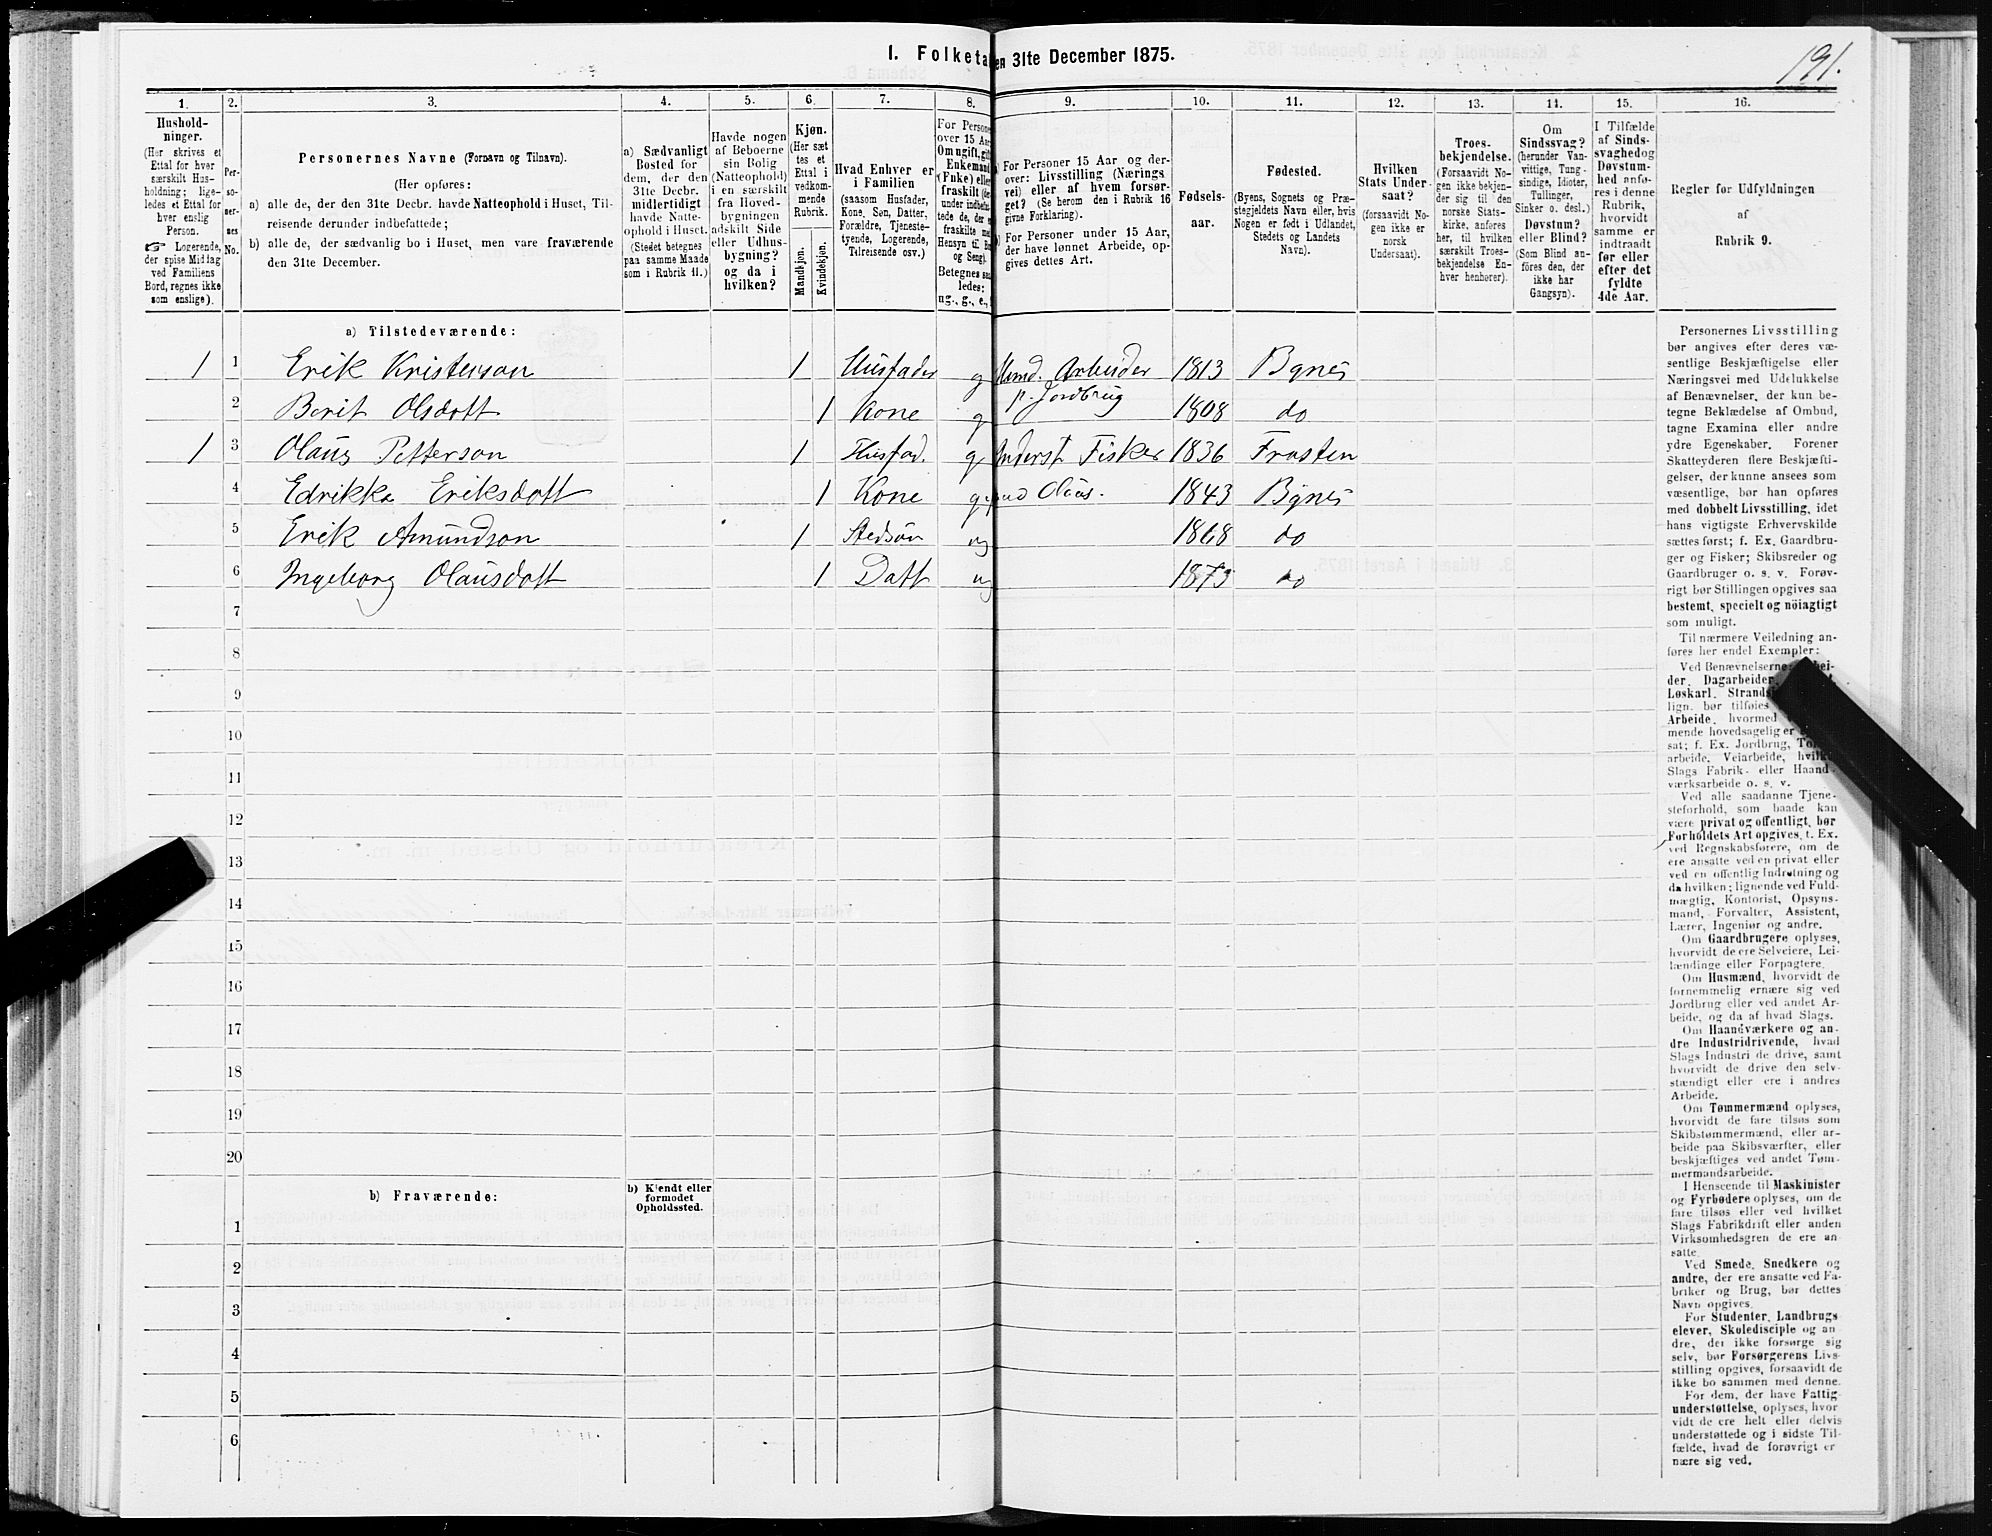 I. Folketa en 31te December 1875.
191.
1. 2. 3. 4. 5. 6. 7. 8. 9. 10. 11. 12. 13. 14. 15. 16.
Hushold-
ninger.
(Her skrives et
Ettal for hver
særskilt Hus-
holdning; lige-
ledes et Ettal for
hver enslig
Person.
☞ Logerende,
der spise Middag
ved Familiens
Bord, regnes ikke
som enslige).
Per-
so-
ner-
nes
No.
Personernes Navne (Fornavn og Tilnavn).
(Her opføres:
a) alle de, der den 31te Decbr. havde Natteophold i Huset, Til-
reisende derunder indbefattede;
b) alle de, der sædvanlig bo i Huset, men vare fraværende
den 31te December.
a) Sædvanligt
Bosted for
dem, der den
31te Decbr.
midlertidigt
havde Natte-
ophold i Huset.
(Stedet betegnes
paa samme Maade
som i Rubrik 11.)
Havde nogen
af Beboerne
sin Bolig
(Natteophold)
i en særskilt
fra Hoved-
bygningen
adskilt Side
eller Udhus-
bygning?
og da i
hvilken?
Kjøn.
(Her sæt
tes et
Ettal i
vedkom-
mende
Rubrik.
Mandkjøn.
Kvindekjøn.
Hvad Enhver er
i Familien
(saasom Husfader,
Kone, Søn, Datter,
Forældre, Tjeneste-
tyende, Logerende,
Tilreisende osv.)
For Persone
over 15 Aar
Om ugift, gift
Enkemand
(Enke) eller
fraskilt (der
under indbefat-
tede de, der e
fraskilte me
Hensyn til Bo
og Seng).
Betegnes saa
ledes:
ug., g., e.,
For Personer 15 Aar og der-
over: Livsstilling (Nærings
vei) eller af hvem forsør-
get? (Se herom den i Rubrik 16
givne Forklaring).
For Personer under 15 Aar,
der have lønnet Arbeide, op-
gives dettes Art.
Fødsels-
aar.
Fødested.
(Byens, Sognets og Præ-
stegjeldets Navn eller, hvis
Nogen er født i Udlandet,
Stedets og Landets
Navn).
Hvilken
Stats Under-
saat?
(forsaavidt No-
gen ikke er
norsk
Undersaat).
Troes-
bekjendelse.
(Forsaavidt No-
gen ikke bekjen-
der sig til den
norske Stats-
kirke, anføres
her, til hvilken
særskilt Troes-
bekjendelse En-
hver henhører).
Om
Sindssvag?
(herunder Van-
vittige, Tung-
sindige, Idioter,
Tullinger,
Sinker o. desl.)
Døvstum?
eller Blind?
(Som Blind an-
føres den, der
ikke har
Gangsyn).
I Tilfælde
af Sinds-
svaghed og
Døvstum-
hed anfø-
res i denne
Rubrik,
hvorvidt
samme er
indtraadt
før eller
efter det
fyldte
4de Aar.
Regler for Udfyldningen
af
Rubrik 9.
a) Tilstedeværende:
1 1 Erik Kristenson 1 Husfader g Arbeider 1813 Bynes
p. Jordbrug
2 Berit Olsdatt 1 Kone g 1808 do
1 3 Olaus Petterson 1 Husfad. g Underst Fisker 1836 Frosten
4 Edrikka Eriksdatt 1 Kone g Olaus. 1843 Bynes
5 Erik Amundson 1 Stedsøn ug 1868 do
6 Ingeborg Olausdatt 1 Datt ug 1873 do
7
8
9
10
11
12
13
14
15
16
17
18
19
20
b) Fraværende:
b) Kjendt eller
formodet
Opholdssted.
1
2
3
4
5
6
Personernes Livsstilling
bør angives efter deres væ-
sentlige Beskjæftigelse eller
Næringsvei med Udelukkelse
af Benævnelser, der kun be-
tegne Beklædelse af Ombud,
tagne Examina eller andre
ydre Egenskaber. Forener
Skatteyderen flere Beskjæfti-
gelser, der kunne ansees som
væsentlige, bør han opføres
med dobbelt Livsstilling, idet
hans vigtigste Erhvervskilde
sættes først; f. Ex. Gaardbru-
ger og Fisker; Skibsreder og
Gaardbruger o. s. v. Forøv-
rigt bør Stillingen opgives saa
bestemt, specielt og nøiagtigt
som muligt.
Til nærmere Veiledning an-
føres her endel Exempler:
Ved Benævnelserne: bei-
der, Dagarbeider,
Løskarl, Strands
lign. bør tilføies
Arbeide, hvormed
mende hovedsagelig er
sat; f. Ex. Jordbrug, Tom
arbeide, Veiarbeide, hvilk
Slags Fabrik- eller Haand-
værksarbeide o. s. v.
Ved alle saadanne Tjene-
steforhold, som baade kan
være privat og offentligt, bør
Forholdets Art opgives, t. Ex.
ved Regnskabsførere, om de
ere ansatte ved en privat eller
ved en offentlig Indretning og
da hvilken; lignende ved Fuld-
mægtig, Kontorist, Opsyns-
mand, Forvalter, Assistent,
Lærer, Ingeniør og andre.
Om Gaardbrugere oplyses,
hvorvidt de ere Selveiere, Lei-
lændinge eller Forpagtere.
Om Husmænd, hvorvidt de
fornemmelig ernære sig ved
Jordbrug eller ved andet Ar-
beide, og da af hvad Slags.
Om Haandværkere og an-
dre Industridrivende, hvad
Slags Industri de drive, samt
hvorvidt de drive den selv-
stændigt eller ere i andres
Arbeide.
Om Tømmermænd oplyses,
hvorvidt de fare tilsøs som
Skibstømmermænd, eller ar-
beide paa Skibsværfter, eller
beskjæftiges ved andet Tøm-
mermandsarbeide.
I Henseende til Maskinister
og Fyrbødere oplyses, om de
fare tilsøs eller ved hvilket
Slags Fabrikdrift eller anden
Virksomhedsgren de ere an-
satte.
Ved Smede, Snedkere og
andre, der ere ansatte ved Fa-
briker og Brug, bør dettes
Navn opgives.
For Studenter, Landbrugs
elever, Skoledisciple og an
dre, der ikke forsørge sig
selv, bør Forsørgerens Livs-
stilling opgives, forsaavidt de
ikke bo sammen med denne.
For dem, der have Fattig
understøttelse, oplyses, hvor
vidt de ere helt eller delvis
understøttede og i sidste Til-
fælde, hvad de forøvrigt er
nære sig ved.